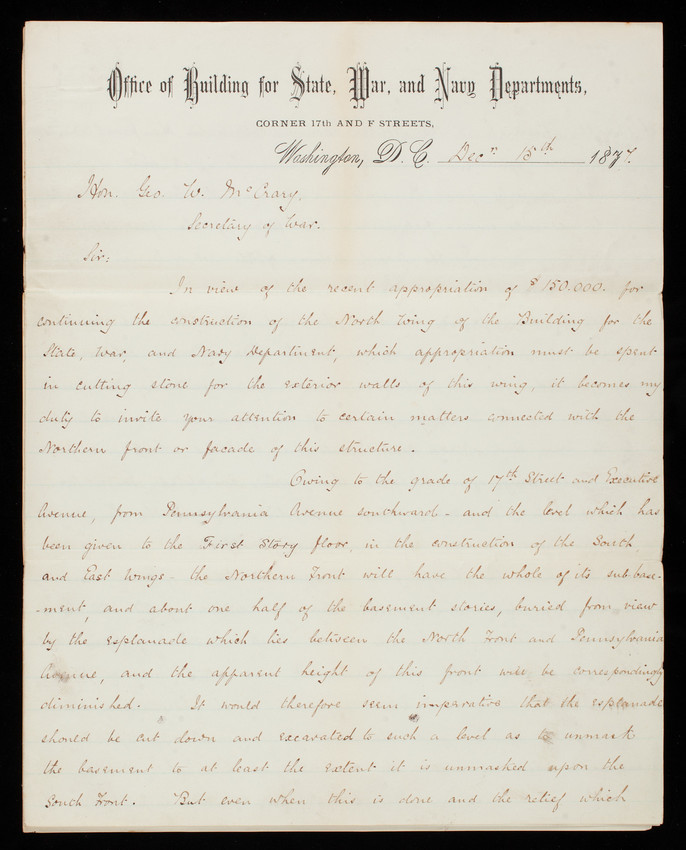 Office of Building for State, War, and Navy Departments,
CORNER 17th AND F STREETS,
Washington, D. C. Decr. 15th 1877.
Hon. Geo. W. McCrary,
Secretary of War.
Sir:
In view of the recent appropriation of $150.000. for
continuing the construction of the North Wing of the Building for the
State, War, and Navy Department, which appropriation must be spent
in cutting stone for the exterior walls of this wing, it becomes my
duty to invite your attention to certain matters connected with the
Northern front or facade of this structure.
Owing to the grade of 17th Street and Executive
Avenue, from Pennsylvania Avenue southward - and the level which has
been given to the First Story floor, in the construction of the South,
and East Wings - the Northern Front will have the whole of its sub-base-
-ment, and about one half of the basement stories, buried from view
by the esplanade which lies between the North Front and Pennsylvania
Avenue, and the apparent height of this front will be correspondingly
diminished. It would therefore seem imperative that the esplanade
should be cut down and excavated to such a level as to unmask
the basement to at least the extent it is unmasked upon the
South Front. But even when this is done and the relief which